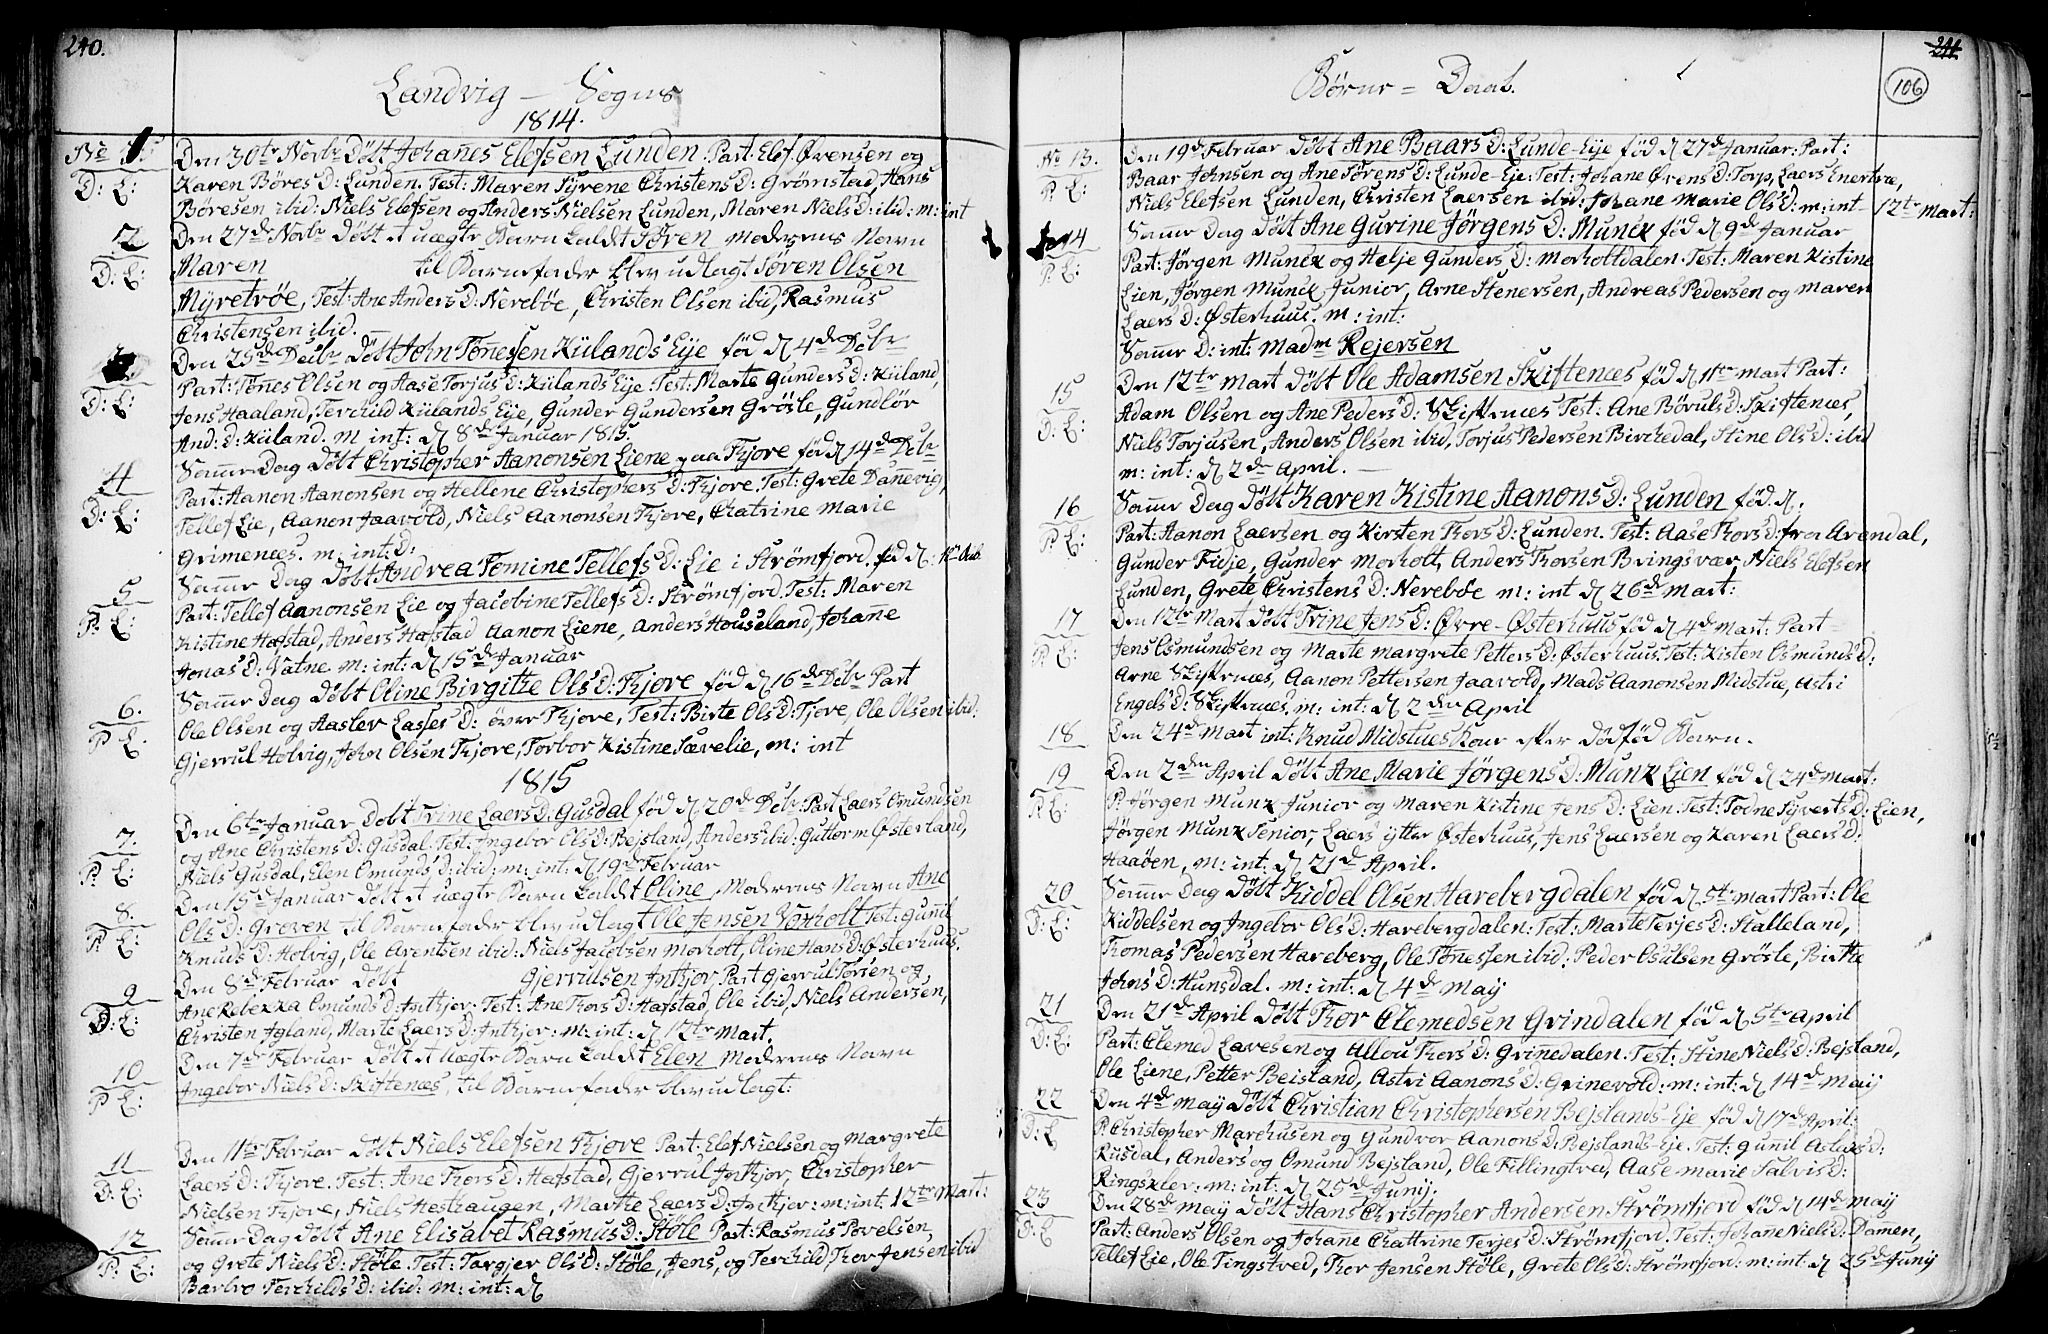 240.
Landvig – Sogns
1814.
No
D: E:
Den 30te Novbr Döbt Johañes Elefsen Lunden. Part: Elef Örensen og
Karen Böres D: Lunden. Test: Maren Syrene Christens D: Grömstad, Hans
Böresen ibid: Niels Elefsen og Anders Nielsen Lunden, Maren Niels D: ibid: m: int
12
D: E:
Den 27de Novbr Döbt et uægte Barn kaldt Sören Moderens Navn
Maren til Barnefader blev udlagt Sören Olsen
Myretröe, Test: Ane Anders D: Nereböe, Christen Olsen ibid, Rasmus
Christensen ibid.
D: E:
Den 25de Decbr Döbt John Töñessen Kiilands Eije föd d 4de Decbr
Part: Töñes Olsen og Aase Torjus D: Kiilands Eije. Test: Marte Gunders D: Kiiland,
Jens Haaland, Terchild Kiilands Eije, Gunder Gundersen Grösle, Gundlör
And: D: Kiiland. m int: d 8de Januar 1815.
4
D: E:
Samme Dag Döbt Christopher Aanonsen Liene paa Fhjore, föd d 14de Decbr
Part: Aanon Aanonsen og Hellene Christophers D: Fhjore. Test: Grete Dañevig,
Tellef Lie, Aanon Jaavold, Niels Aanonsen Fhjore, Chatrine Marie
Grimenæs. m: int: D:
5
P: E:
Samme Dag Döbt Andrea Tomine Tellefs D: Lie i Strömfjord, föd d:
Part: Tellef Aanonsen Lie og Jacobine Tellefs D: Strömfjord. Test: Maren
Kistine Hafstad, Anders Hafstad Aanon Liene, Anders Houseland, Johañe
Jonas D: Vatne. m: int: d 15de Januar
6.
P E.
Samme Dag Döbt Oline Birgithe Ols D: Fhjore föd d 16de Decbr Part
Ole Olsen og Aaslev Lasses D: över Fhjore, Test: Birte Ols D: Fjore, Ole Olsen ibid:
Gjerrul Holvig, John Olsen Fhjore, Torbor Kistine Særelie, m: int
1815
7.
P: E:
Den 6te Januar Döbt Trine Laers D: Gusdal föd d 20de Decbr: Part Laers Omundsen
og Ane Christens D: Gusdal. Test: Ingebor Ols D: Bejsland, Anders ibid: Guttorm Österland,
Niels Gusdal, Elen Omunds D: ibid: m: int: d 19de Februar
8.
P: E:
Den 15de Januar döbt et uægte Barn kaldt Oline, Moderens Navn Ane
Ols D: Groven til Barnefader blev udlagt Ole Jensen Vorholt Test: Gunil
Knuds D: Holvig, Ole Arentsen ibid: Niels Jacobsen Morholt, Oline Hans D: Österhuus.
9
D: E:
Den 8de Februar döbt Gjerrulsen Inthjör, Part Gjerrul Torsen og
Ane Rebekka Omunds D: Inthjor. Test: Ane Thors D: Hafstad, Ole ibid, Niels Andersen,
Christen Igland, Marte Laers D: Inthjör: m: int: d 12te Mart.
10
P: E:
Den 7de Februar döbt et uægte Barn kaldt Elen Moderens Navn
Ingebor Niels D: Skiftenæs, til Barnefader blev udlagt:
11
D: E:
Den 11te Februar döbt Niels Elefsen Fhjore Part: Elef Nielsen og Margrete
Laers D: Fhjore. Test: Ane Thors D: Hafstad, Gjerrul Inthjor, Christopher
Nielsen Fhjore, Niels Hesthaugen, Marthe Laers D: Inthjor: m: int: 12te Mart:
12
P: E:
Samme Dag döbt Ane Elisabet Rasmus D: Stöle Part: Rasmus Povelsen,
og Grete Niels D: Stöle. Test: Targjer Ols D: Stöle, Jens, og Terchild, Thor Jensen ibid
Barbro Terchilds D: ibid: m: int: d
241
106
Börne = Daab.
No 13.
P: E:
Den 19de Februar Döbt Ane Baars D: Lunde-Eije föd d 27de Januar: Part:
Baar Johnsen og Ane Sörens D: Lunde-Eje: Test: Johane Örens D: Torp, Laers Enertræ,
Niels Elefsen Lunden, Christen Laersen ibid: Johane Marie Ols D: m: int 12te Mart:
14
P. E:
Samme Dag Döbt Ane Gurine Jörgens D: Munck föd d 9de Januar
Part: Jörgen Munck og Helje Gunders D: Morholtdalen. Test: Maren Kistine
Lien, Jörgen Munck Junior, Arne Stenersen, Andreas Pedersen og Maren
Laers D: Österhuus. m: int:
Samme D: int: Madm Rejersen
15
D: E:
Den 12te Mart Döbt Ole Adamsen Skiftenæs föd d 11te Mart Part:
Adam Olsen og Ane Peders D: Skiftenæs Test: Ane Böruls D: Skiftenæs,
Niels Torjusen, Anders Olsen ibid, Torjus Pedersen Birchedal, Stine Ols D: ibid
m: int: d 2de April.
16
P: E:
Samme Dag Döbt Karen Kistine Aanons D: Lunden föd d.
Part: Aanon Laersen og Kirsten Thors D: Lunden. Test: Aase Thors D: fra Arendal,
Gunder Fidje, Gunder Morholt, Anders Thorsen Bringsvær, Niels Elefsen
Lunden, Grete Christens D: Nereböe m: int d 26de Mart:
17
P: E:
Den 12te Mart Döbt Trine Jens D: Övre-Österhuus föd d 4de Mart: Part
Jens Osmundsen og Marte Margrete Petters D: Österhuus. Test: Kisten Osmunds D:
Arne Skiftenæs, Aanon Pettersen Jaavold, Mads Aanonsen Midstue, Astri
Engels D: Skiftenæs. m: int: d 2den April
18
Den 24de Mart int: Knud Midstues Kone efter Dödföd Barn.
19
P: E:
Den 2den April Döbt Ane Marie Jörgens D: Munk Lien föd d 24de Mart:
P: Jörgen Munk Junior og Maren Kistine Jens D: Lien. Test: Todne Syverts D: Lien,
Jörgen Munk Senior, Laers ytter Österhuus, Jens Laersen og Karen Laers D:
Haaöen, m: int: d 21de April.
20
D: E:
Samme Dag Döbt Kiddel Olsen Harebergdalen föd d 5te Mart Part: Ole
Kiddelsen og Ingebor Ols D: Harebergdalen: Test: Marte Terjes D: Stalleland,
Thomas Pedersen Hareberg, Ole Töñessen ibid: Peder Osulsen Grösle, Birthe
Johns D: Hunsdal. m: int: d 4de May
21
D: E:
Den 21de April döbt Thor Clemedsen Grindalen föd d 5te April
Part: Clemed Lavesen og Allou Thors D: Griñedalen. Test: Stine Niels D: Bejsland,
Ole Liene, Petter Beisland, Astri Aanons D: Grinevold: m: int: d 14de May
22
D: E
Den 4de May döbt Christian Christophersen Bejslands-Eje föd d 17de April:
P: Christopher Marchusen og Gundvor Aanons D: Bejslands-Eje. Test: Gunil Aslaks D:
Riisdal, Anders og Omund Bejsland, Ole Fillingtræ, Aase Marie Salvis D:
Ringskler: m: int: d 25de Junij.
23
D: E
Den 28de May döbt Hans Christopher Andersen Strömfjord föd d 14de May
Part: Anders Olsen og Johane Chattrine Terjes D: Strömfjord. Test: Johane Niels D: Damen,
Tellef Lie, Ole Tingstved, Thor Jensen Stöle, Grete Ols D: Strömfjord: m: int: d 25de Junij